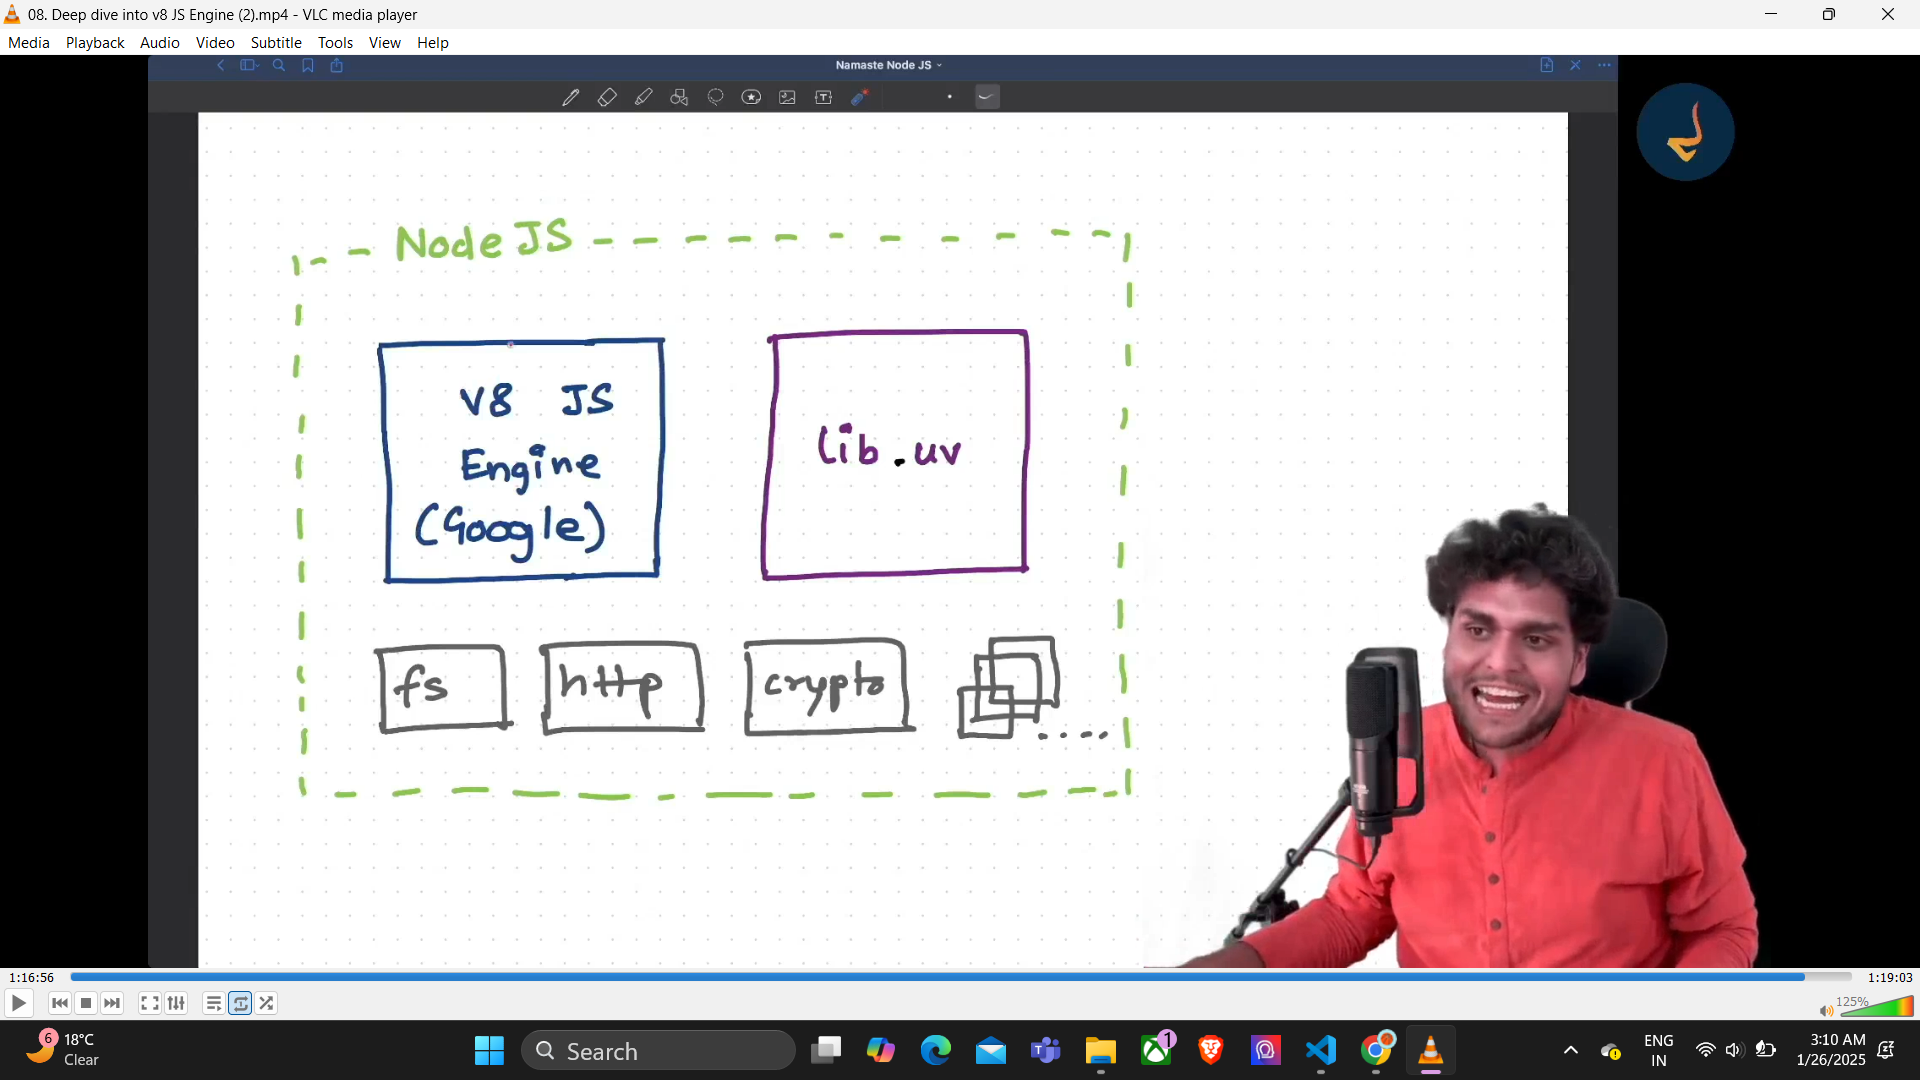 08. Deep dive into v8 JS Engine (2).mp4 - VLC media player
Media Playback Audio Video Subtitle Tools View Help
Namaste Node JS
Node JS
V8 JS
Engine
(Google)
lib.uv
fs
http
crypto
1:16:56
1:19:03
125%
6
18°C
Clear
Search
1
ENG
IN
3:10 AM
1/26/2025